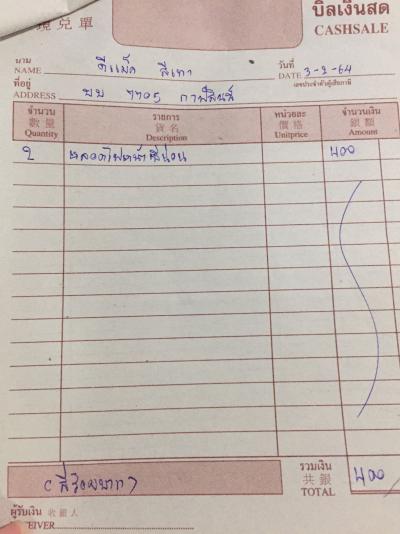 บิลเงินสด
現兌單 CASHSALE
นาม
NAME ดีแม็ค สีเทา
วันที่
DATE 3-2-64
ที่อยู่
ADDRESS บบ 7705 กาฬสินธุ์
เลขประจำตัวผู้เสียภาษี
จำนวน รายการ หน่วยละ จำนวนเงิน
數量 貨名 價格 銀額
Quantity Description Unitprice Amount
2 หลอดไฟหน้า 400
รวมเงิน
共銀
TOTAL 400
(สี่ร้อยบาท)
ผู้รับเงิน 收銀人
EIVER